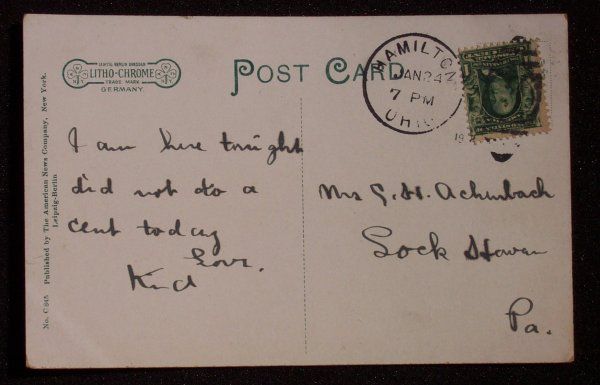 LEIPZIG BERLIN DRESDEN
LITHO-CHROME
TRADE MARK
N.Y.
N.Y.
GERMANY.
POST CARD
HAMILTON
JAN 24
7 PM
OHIO
19
I am here tonight
did not do a
cent today
Love.
Mrs G. H. Achenbach
Lock Haven
Pa.
No. C 845 Published by The American News Company, New York.
Leipzig-Berlin